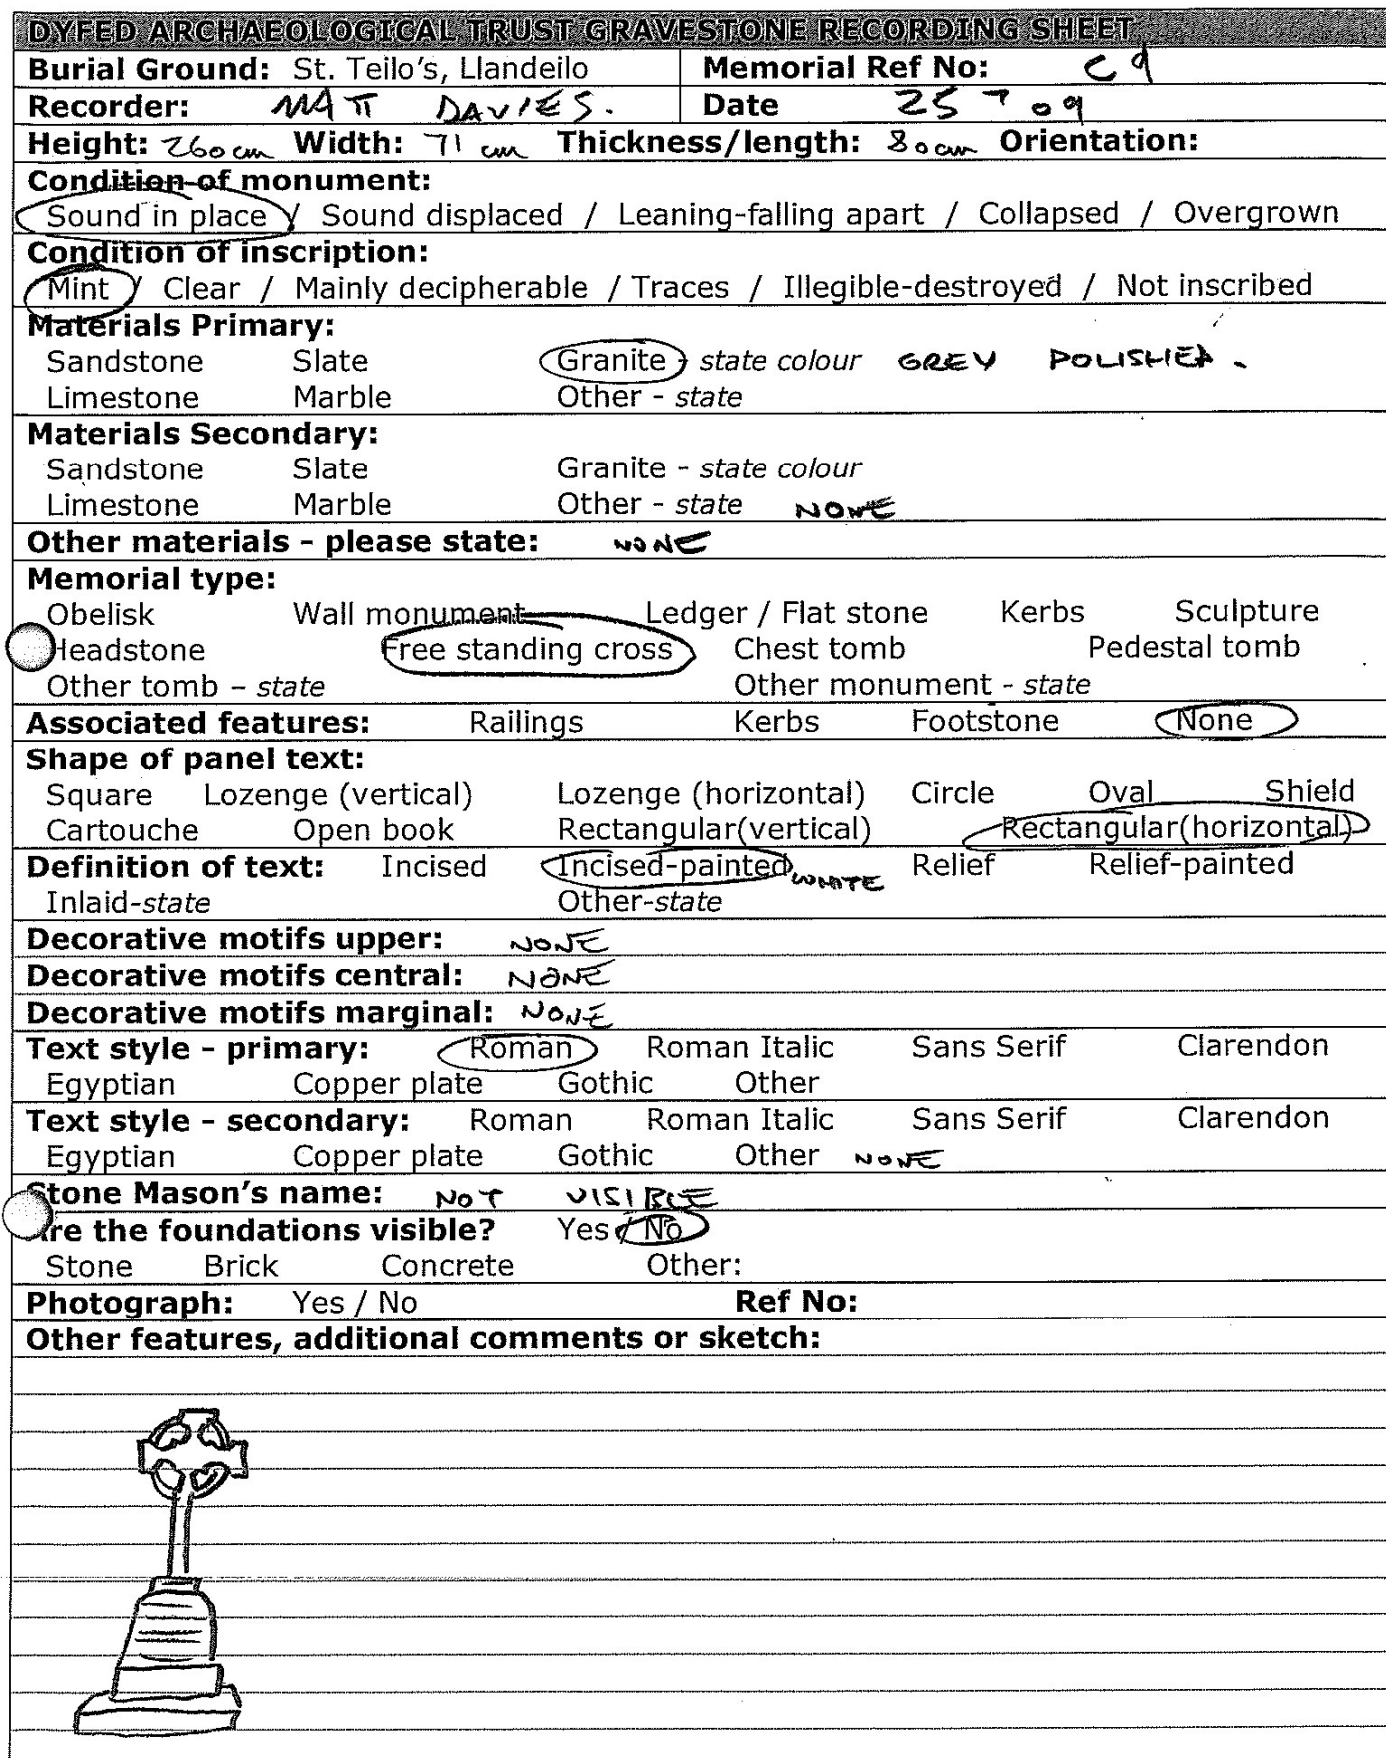 DYFED ARCHAEOLOGICAL TRUST GRAVESTONE RECORDING SHEET
Burial Ground: St. Teilo's, Llandeilo Memorial Ref No: C9
Recorder: MATT DAVIES. Date 25 7 09
Height: 260cm Width: 71 cm Thickness/length: 80cm Orientation:
Condition of monument:
Sound in place / Sound displaced / Leaning-falling apart / Collapsed / Overgrown
Condition of inscription:
Mint / Clear / Mainly decipherable / Traces / Illegible-destroyed / Not inscribed
Materials Primary:
Sandstone Slate Granite - state colour GREY POLISHED.
Limestone Marble Other - state
Materials Secondary:
Sandstone Slate Granite - state colour
Limestone Marble Other - state NONE
Other materials - please state: NONE
Memorial type:
Obelisk Wall monument Ledger / Flat stone Kerbs Sculpture
Headstone Free standing cross Chest tomb Pedestal tomb
Other tomb – state Other monument - state
Associated features: Railings Kerbs Footstone None
Shape of panel text:
Square Lozenge (vertical) Lozenge (horizontal) Circle Oval Shield
Cartouche Open book Rectangular(vertical) Rectangular(horizontal)
Definition of text: Incised Incised-painted WHITE Relief Relief-painted
Inlaid-state Other-state
Decorative motifs upper: NONE
Decorative motifs central: NONE
Decorative motifs marginal: NONE
Text style - primary: Roman Roman Italic Sans Serif Clarendon
Egyptian Copper plate Gothic Other
Text style - secondary: Roman Roman Italic Sans Serif Clarendon
Egyptian Copper plate Gothic Other NONE
Stone Mason's name: NOT VISIBLE
Are the foundations visible? Yes / No
Stone Brick Concrete Other:
Photograph: Yes / No Ref No:
Other features, additional comments or sketch: